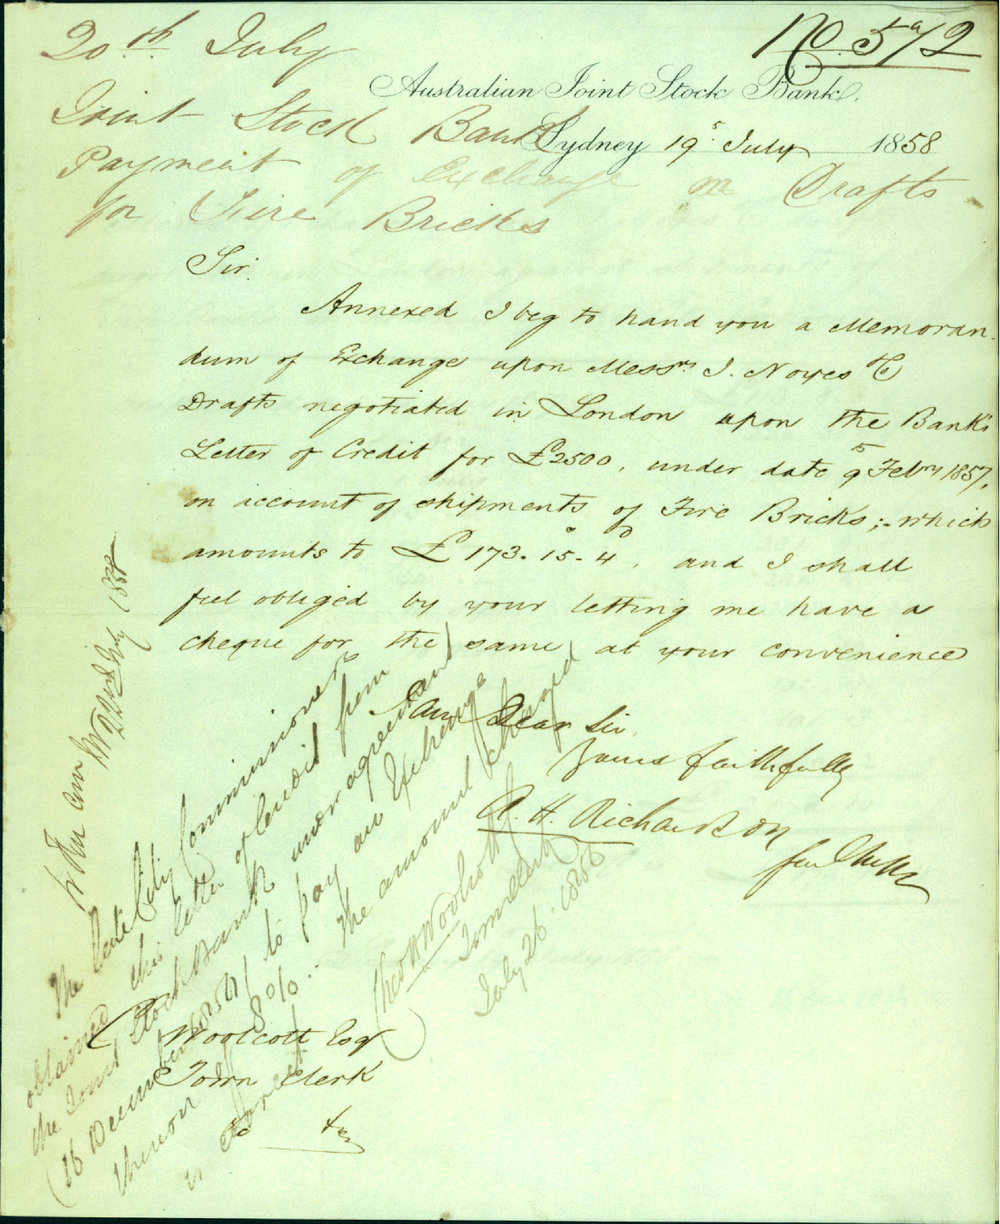 20th July
No. 572
Australian Joint Stock Bank.
Joint Stock Bank
Sydney 19 July 1858
Payment of Exchange on Drafts
for Fire Bricks
Sir.
Annexed I beg to hand you a Memoran
dum of Exchange upon Messrs J. Noyes Co
Drafts negotiated in London upon the Bank's
Letter of Credit for £2500, under date 9 Febry 1857,
on account of shipments of Fire Bricks;- which
amounts to £173. 15. 4, and I shall
feel obliged by your letting me have a
cheque for the same at your convenience
I am Dear Sir,
Yours faithfully
A. H. Richardson
Woolcott Esq
Town Clerk
&c &c
The late City Commissioners
obtained this letter of Credit from
the Joint Stock Bank under agreement
(16 December 1856) to pay an Exchange
thereon of 8 o/o. The amount charged
is correct.
Chas H Woolcott
Town Clerk
July 26. 1858
July 1858